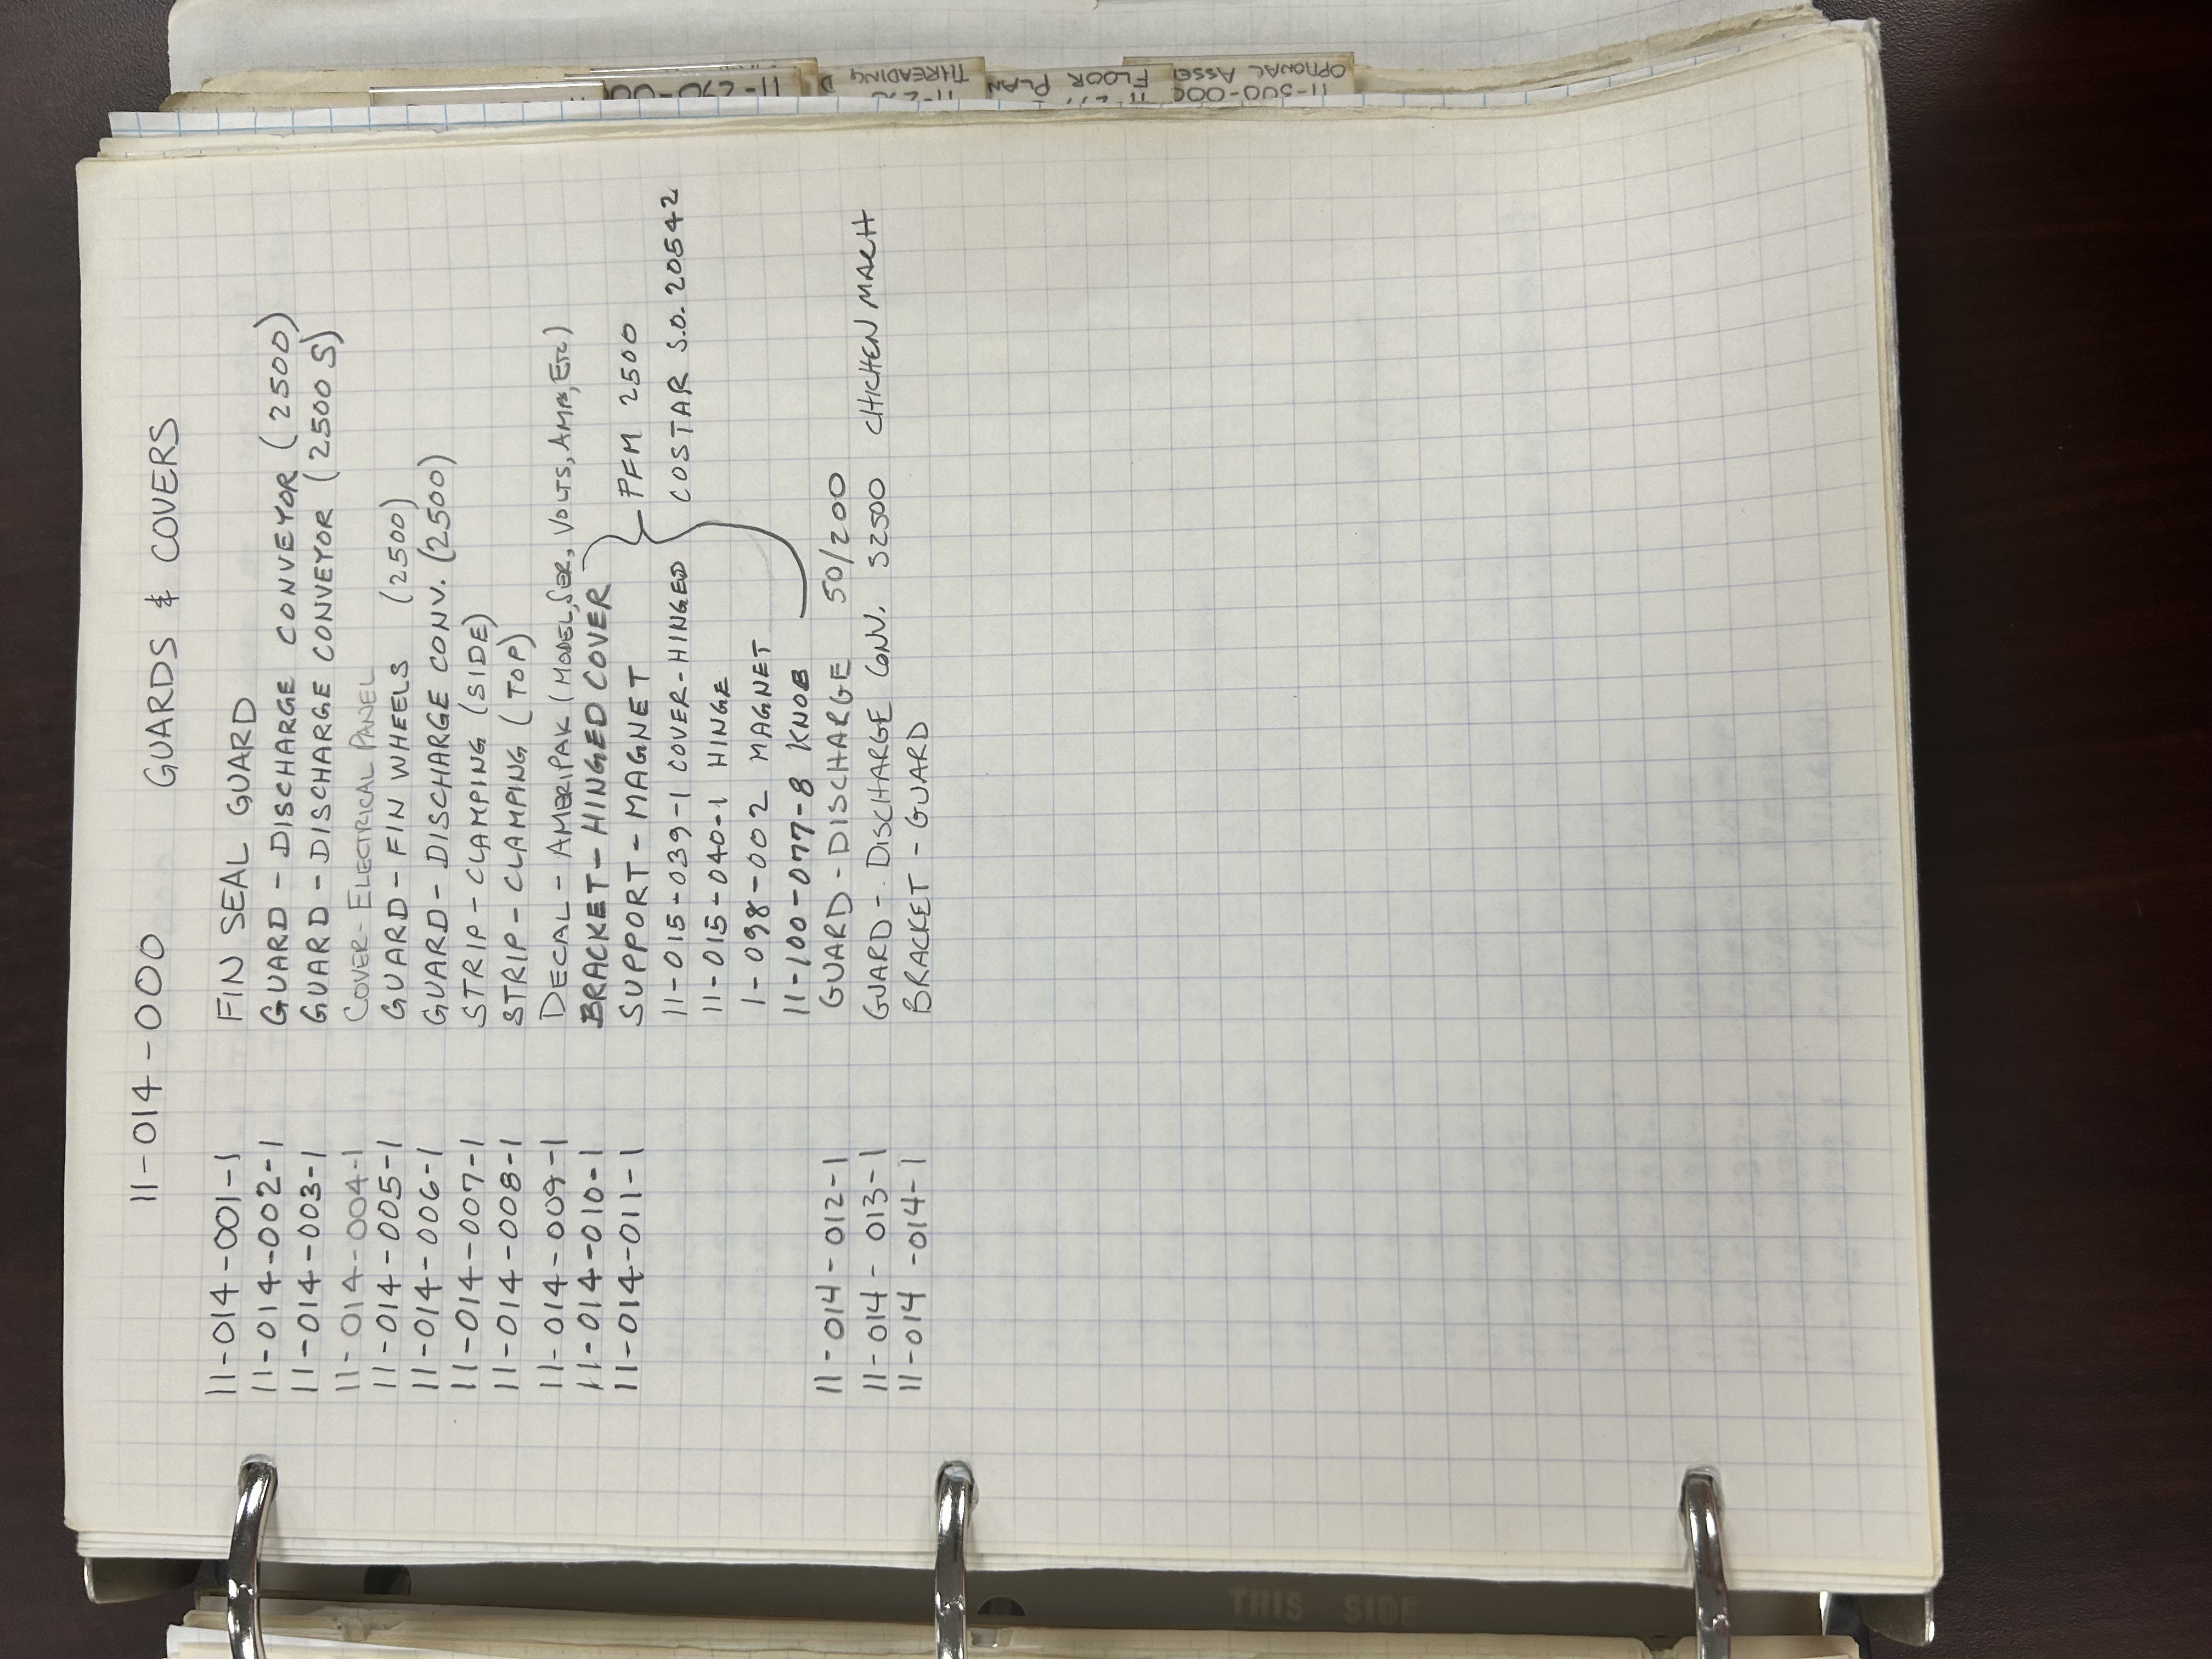 11-014-000 GUARDS & COVERS
11-014-001-1 FIN SEAL GUARD
11-014-002-1 GUARD - DISCHARGE CONVEYOR (2500)
11-014-003-1 GUARD - DISCHARGE CONVEYOR (2500 S)
11-014-004-1 COVER - ELECTRICAL PANEL
11-014-005-1 GUARD - FIN WHEELS (2500)
11-014-006-1 GUARD - DISCHARGE CONV. (2500)
11-014-007-1 STRIP - CLAMPING (SIDE)
11-014-008-1 STRIP - CLAMPING (TOP)
11-014-009-1 DECAL - AMERIPAK (MODEL, SER, VOLTS, AMPS, ETC)
11-014-010-1 BRACKET - HINGED COVER
11-014-011-1 SUPPORT - MAGNET PFM 2500
11-015-039-1 COVER - HINGED COSTAR S.O. 20542
11-015-040-1 HINGE
1-098-002 MAGNET
11-100-077-8 KNOB
11-014-012-1 GUARD - DISCHARGE 50/200
11-014-013-1 GUARD - DISCHARGE CONV. S2500 CHICKEN MACH
11-014-014-1 BRACKET - GUARD
THREADING D
FLOOR PLAN
11-500-000
OPTIONAL ASSE
THIS SIDE